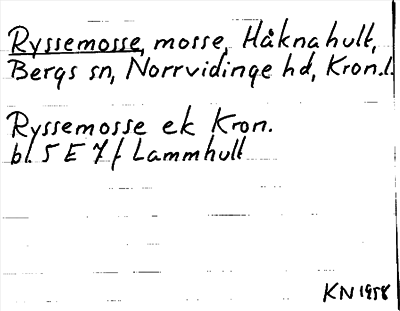 Ryssemosse, mosse, Håknahult,
Bergs sn, Norrvidinge hd, Kron.l.
Ryssemosse ek Kron.
bl. 5 E 7 f Lammhult
KN 1958